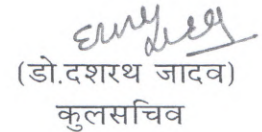 (डो.दशरथ जादव)
कुलसचिव